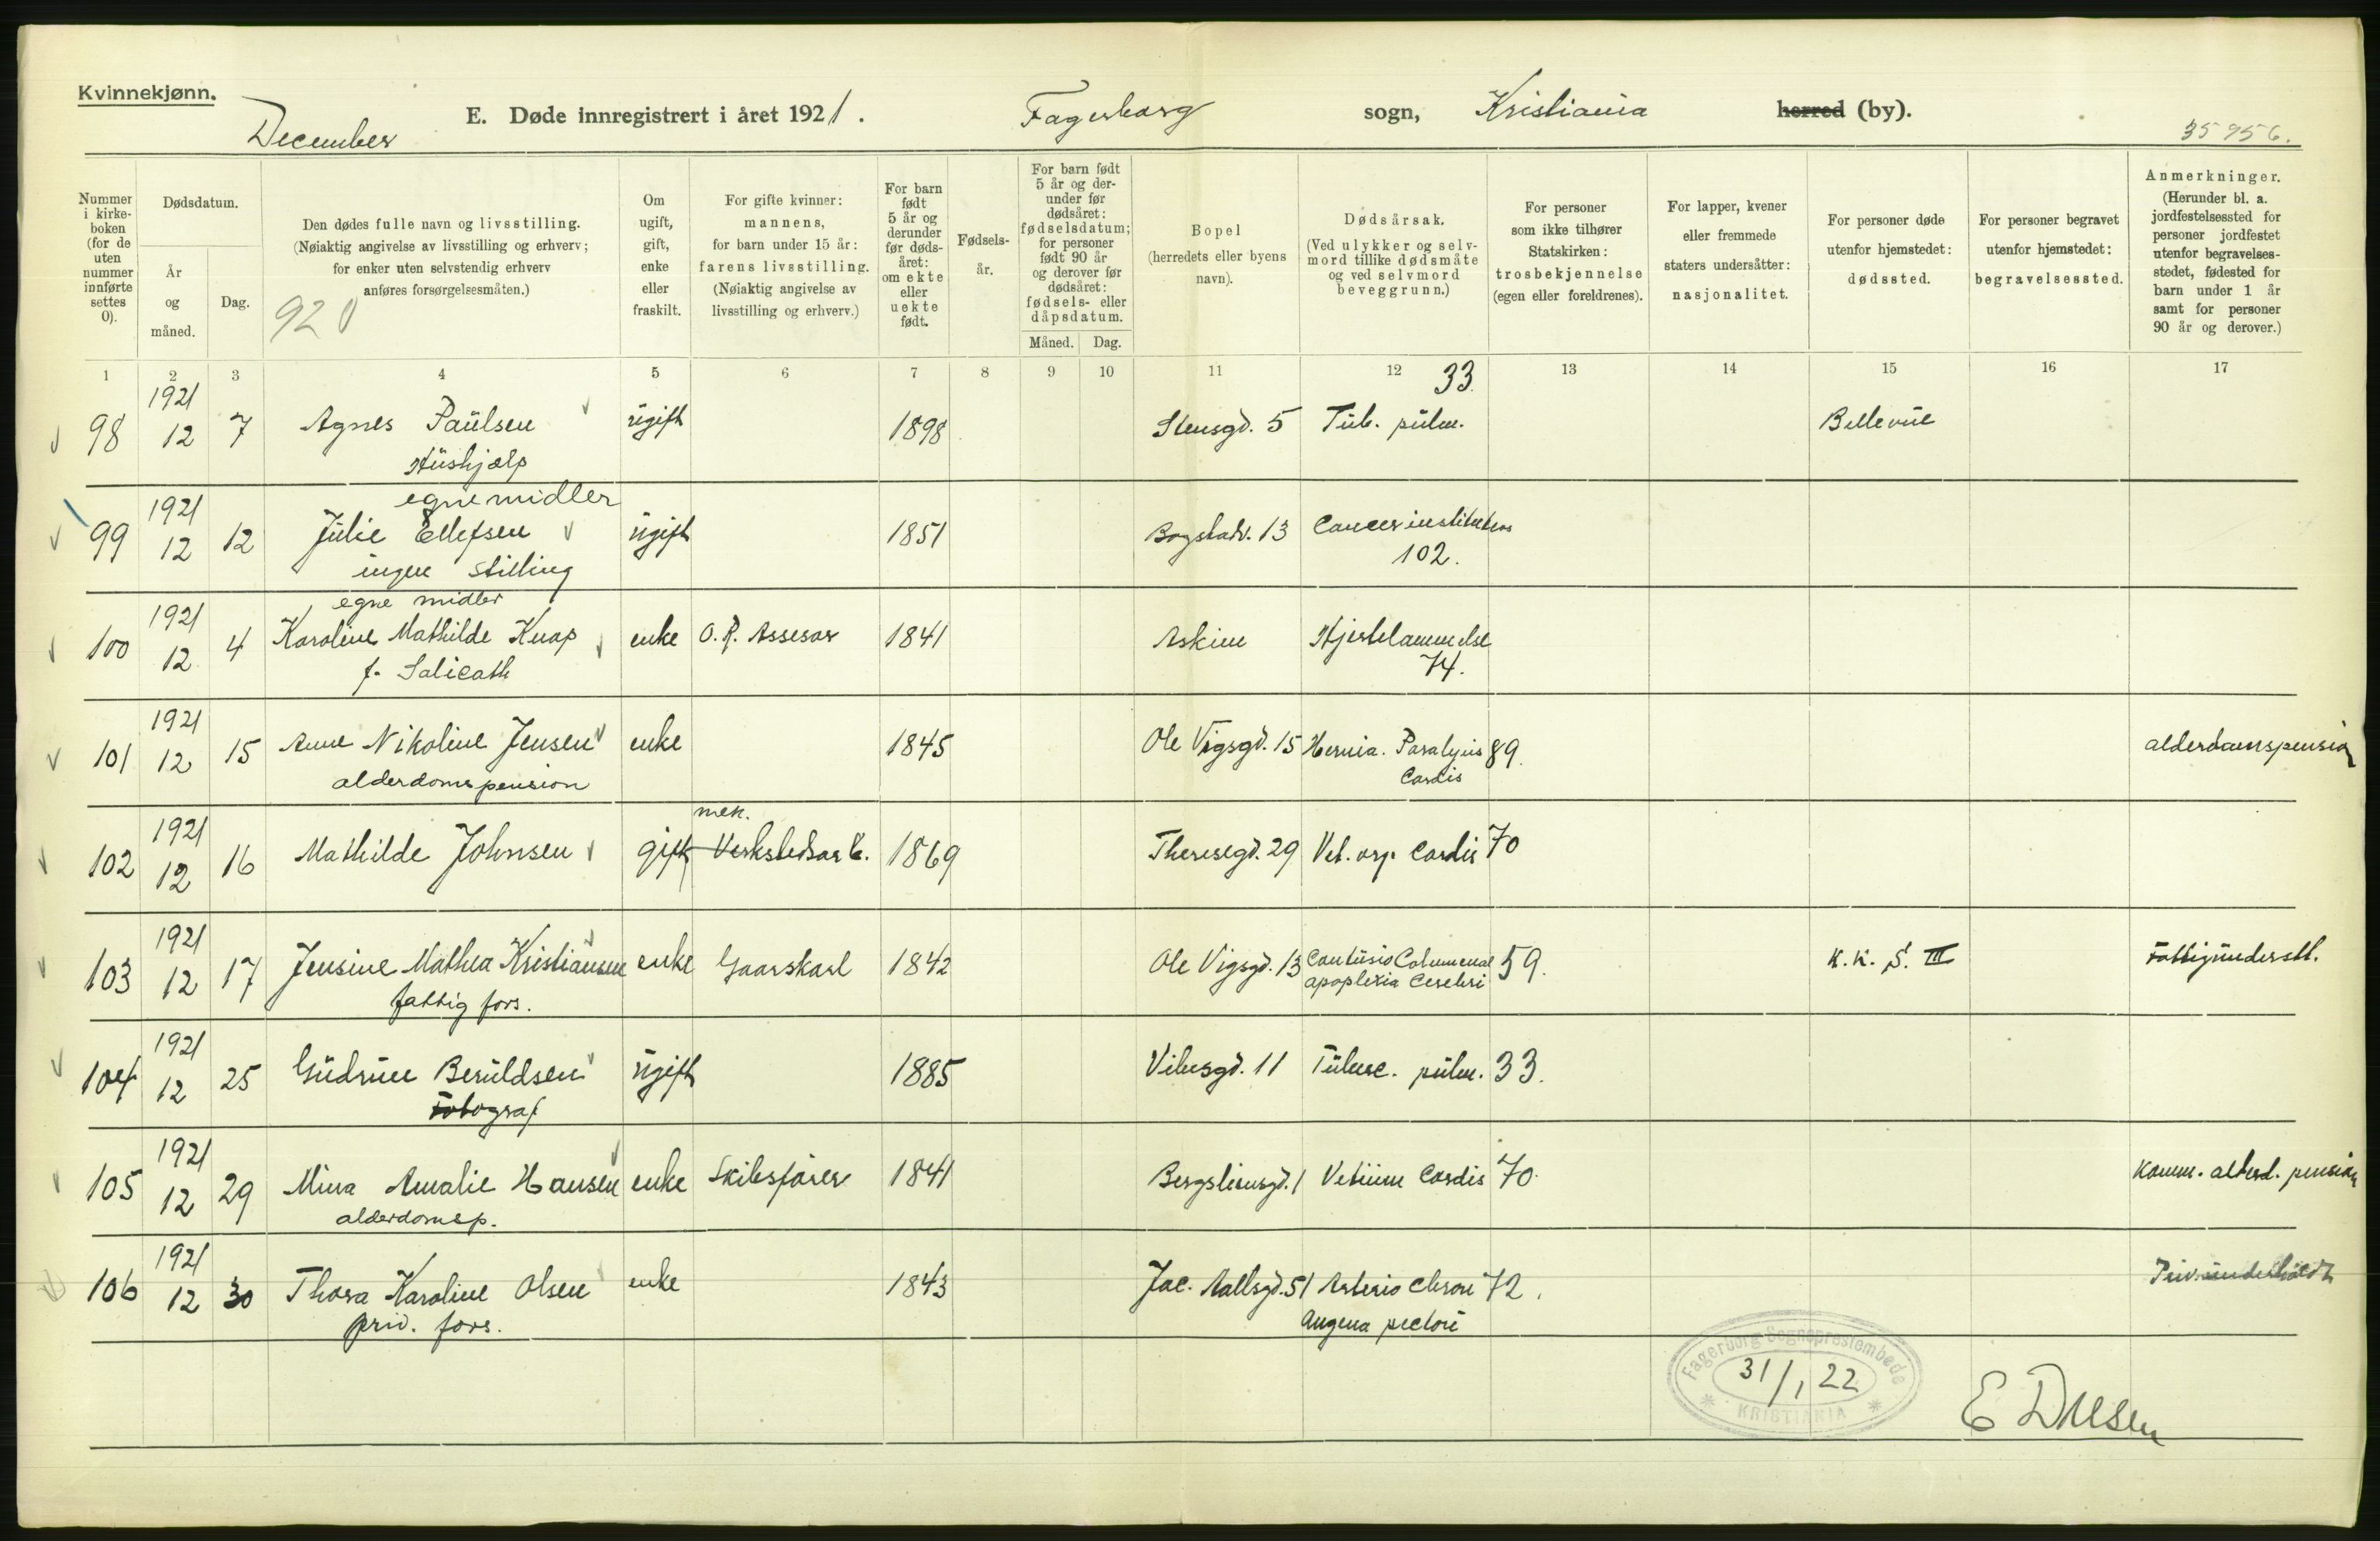 Kvinnekjønn.
December
E. Døde innregistrert i året 1921.
Fagerborg sogn, Kristiania herred (by).
35956.
Nummer i kirke-boken (for de uten nummer innførte settes 0).
Dødsdatum.
År og måned.
Dag.
Den dødes fulle navn og livsstilling.
(Nøiaktig angivelse av livsstilling og erhverv; for enker uten selvstendig erhverv anføres forsørgelsesmåten.)
920
Om ugift, gift, enke eller fraskilt.
For gifte kvinner: mannens, for barn under 15 år: farens livsstilling. (Nøiaktig angivelse av livsstilling og erhverv.)
For barn født 5 år og derunder før døds-året: om ekte eller uekte født.
Fødsels-år.
For barn født 5 år og der-under før dødsåret: fødselsdatum; for personer født 90 år og derover før dødsåret: fødsels- eller dåpsdatum.
Måned. Dag.
Bopel (herredets eller byens navn).
Dødsårsak. (Ved ulykker og selv-mord tillike dødsmåte og ved selvmord beveggrunn.)
For personer som ikke tilhører Statskirken: trosbekjennelse (egen eller foreldrenes).
For lapper, kvener eller fremmede staters undersåtter: nasjonalitet.
For personer døde utenfor hjemstedet: dødssted.
For personer begravet utenfor hjemstedet: begravelsessted.
Anmerkninger. (Herunder bl. a. jordfestelsessted for personer jordfestet utenfor begravelses-stedet, fødested for barn under 1 år samt for personer 90 år og derover.)
1 2 3 4 5 6 7 8 9 10 11 12 13 14 15 16 17
1921 33.
98 12 7 Agnes Paulsen ugift 1898 Stensgd. 5 Tub. pulm. Bellevue
Hushjælp
egne midler
1921
99 12 12 Julie Ellefsen ugift 1851 Bogstadv. 13 Cancer
ingen stilling 102.
egne midler
1921
100 12 4 Karoline Mathilde Knap enke O.R. Assesor 1841 Askim Hjertelammelse
f. Salicath 74.
1921
101 12 15 Anne Nikoline Jensen enke 1845 Ole Vigsgd. 15 Hernia. Paralysis 89. alderdomspension
alderdomspension Cordis
1921 mek.
102 12 16 Mathilde Johnsen gift Verkstedsarb. 1869 Theresegd. 29 Vit. org. Cordis 70
1921
103 12 17 Jensine Mathea Kristiansen enke Gaarskarl 1842 Ole Vigsgd. 13 Contusio Columenal 59. K. K. S. III Fattigunderstt.
fattig fors. apoplexia Cerebri
1921
104 12 25 Gudrun Beruldsen ugift 1885 Vibesgd. 11 Tuberc. pulm. 33.
Fotograf
1921
105 12 29 Mina Amalie Hansen enke Skibsfører 1841 Bergsliensgd. 1 Vitium Cordis 70. Komm. alderd. pension
alderdomsp.
1921
106 12 30 Thora Karoline Olsen enke 1843 Jac. Aallsgd. 51 Arterio Cleron 72. Priv. underholdt
priv. fors. Angena pectori
Fagerborg Sogneprestembede
31/1 22
KRISTIANIA